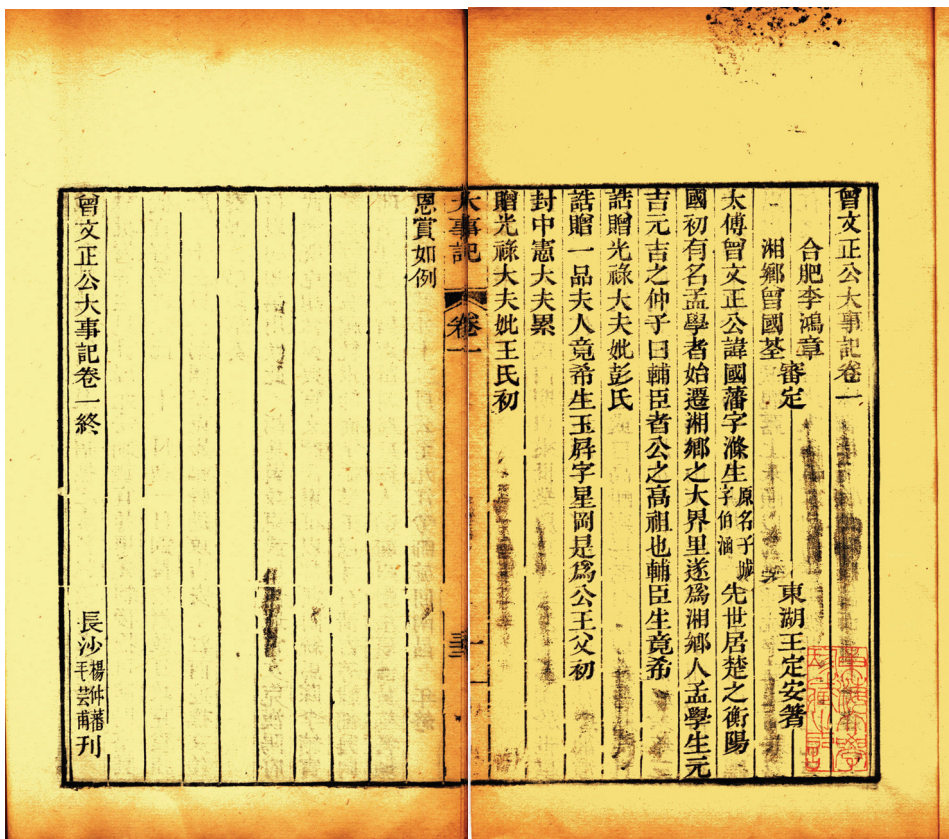 曾文正公大事記卷一
合肥李鴻章
湘鄉曾國荃
審定
東湖王定安著
太傅曾文正公諱國藩字滌生原名子城字伯涵先世居楚之衡陽
國初有名孟學者始遷湘鄉之大界里遂爲湘鄉人孟學生元
吉元吉之仲子曰輔臣者公之高祖也輔臣生竟希
誥贈光祿大夫妣彭氏
誥贈一品夫人竟希生玉屏字星岡是爲公王父初
封中憲大夫累
贈光祿大夫妣王氏初
大事記
卷一
一
恩賞如例
曾文正公大事記卷一終
長沙楊仲藩毛芸甫刊